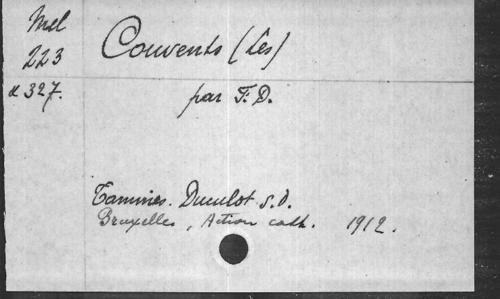 Mel
223
Couvents (Les)
α 327.
par F. D.
Tamines. Duculot s.d.
Bruxelles, Action cath. 1912.